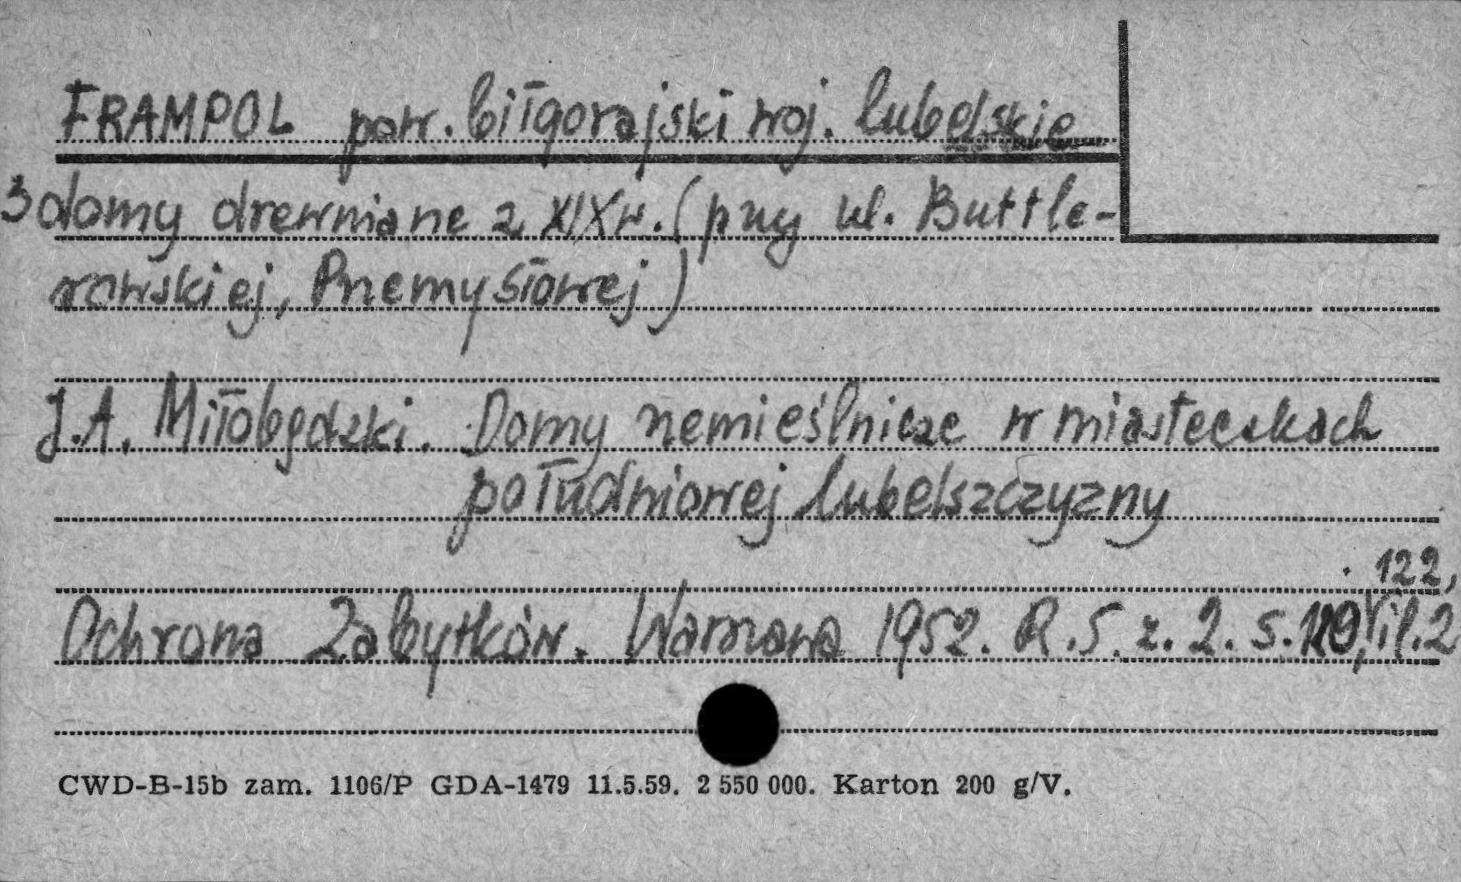 FRAMPOL pow. biłgorajski woj. lubelskie
3 domy drewniane z XIX w. (przy ul. Buttle-
rowskiej, Przemysłowej)
J.A. Miłobędzki. Domy rzemieślnicze w miasteczkach
południowej Lubelszczyzny
122,
Ochrona Zabytków. Warszawa 1952. R.5. z. 2. s. 120, il. 2
CWD-B-15b zam. 1106/P GDA-1479 11.5.59. 2 550 000. Karton 200 g/V.